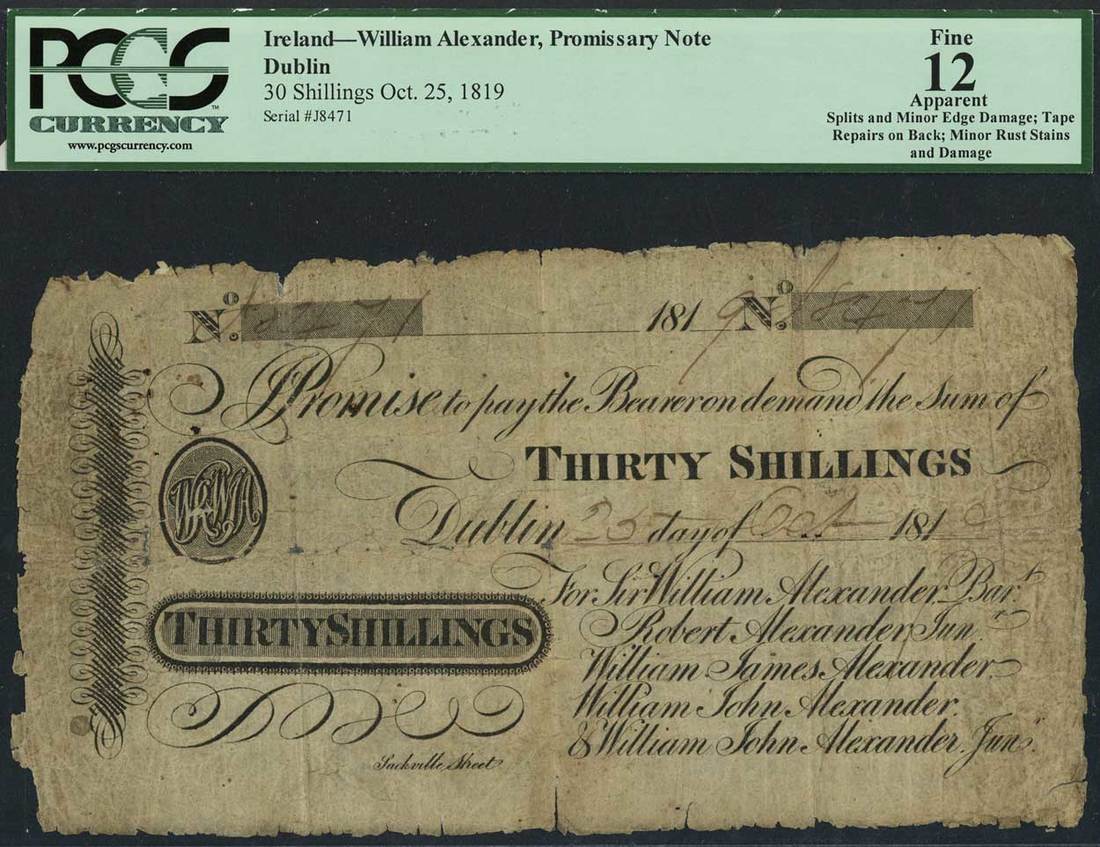 PCGS
CURRENCY
www.pcgscurrency.com
Ireland—William Alexander, Promissary Note
Dublin
30 Shillings Oct. 25, 1819
Serial #J8471
Fine
12
Apparent
Splits and Minor Edge Damage; Tape
Repairs on Back; Minor Rust Stains
and Damage
No. 8471 1819 No. 8471
I Promise to pay the Bearer on demand the Sum of
THIRTY SHILLINGS
Dublin 25 day of Oct 181
For Sir William Alexander Bart
Robert Alexander Jun
William James Alexander
William John Alexander.
& William John Alexander Junr
THIRTY SHILLINGS
Sackville Street